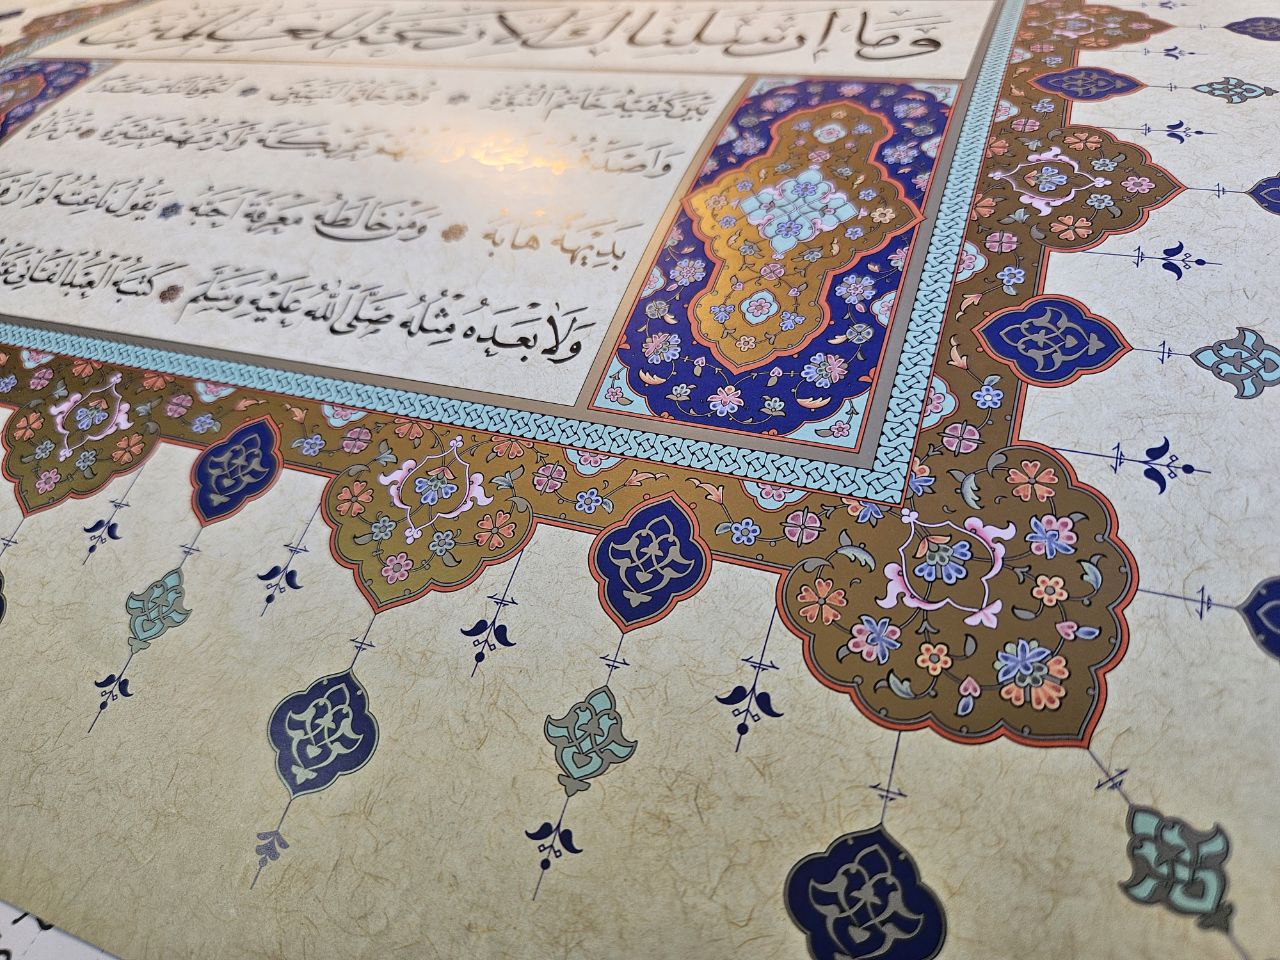 وَمَا أَرْسَلْنَاكَ إِلَّا رَحْمَةً لِلْعَالَمِينَ
بَيْنَ كَتِفَيْهِ خَاتَمُ النُّبُوَّةِ وَهُوَ خَاتَمُ النَّبِيِّينَ أَجْوَدُ النَّاسِ صَدْرًا
وَأَصْدَقُ عَرِيكَةً وَأَكْرَمُهُمْ عِشْرَةً مَنْ رَآهُ
بَدِيهَةً هَابَهُ وَمَنْ خَالَطَهُ مَعْرِفَةً أَحَبَّهُ يَقُولُ نَاعِتُهُ لَمْ أَرَ
وَلَا بَعْدَهُ مِثْلَهُ صَلَّى اللهُ عَلَيْهِ وَسَلَّمَ كَتَبَهُ الْعَبْدُ الْفَانِي